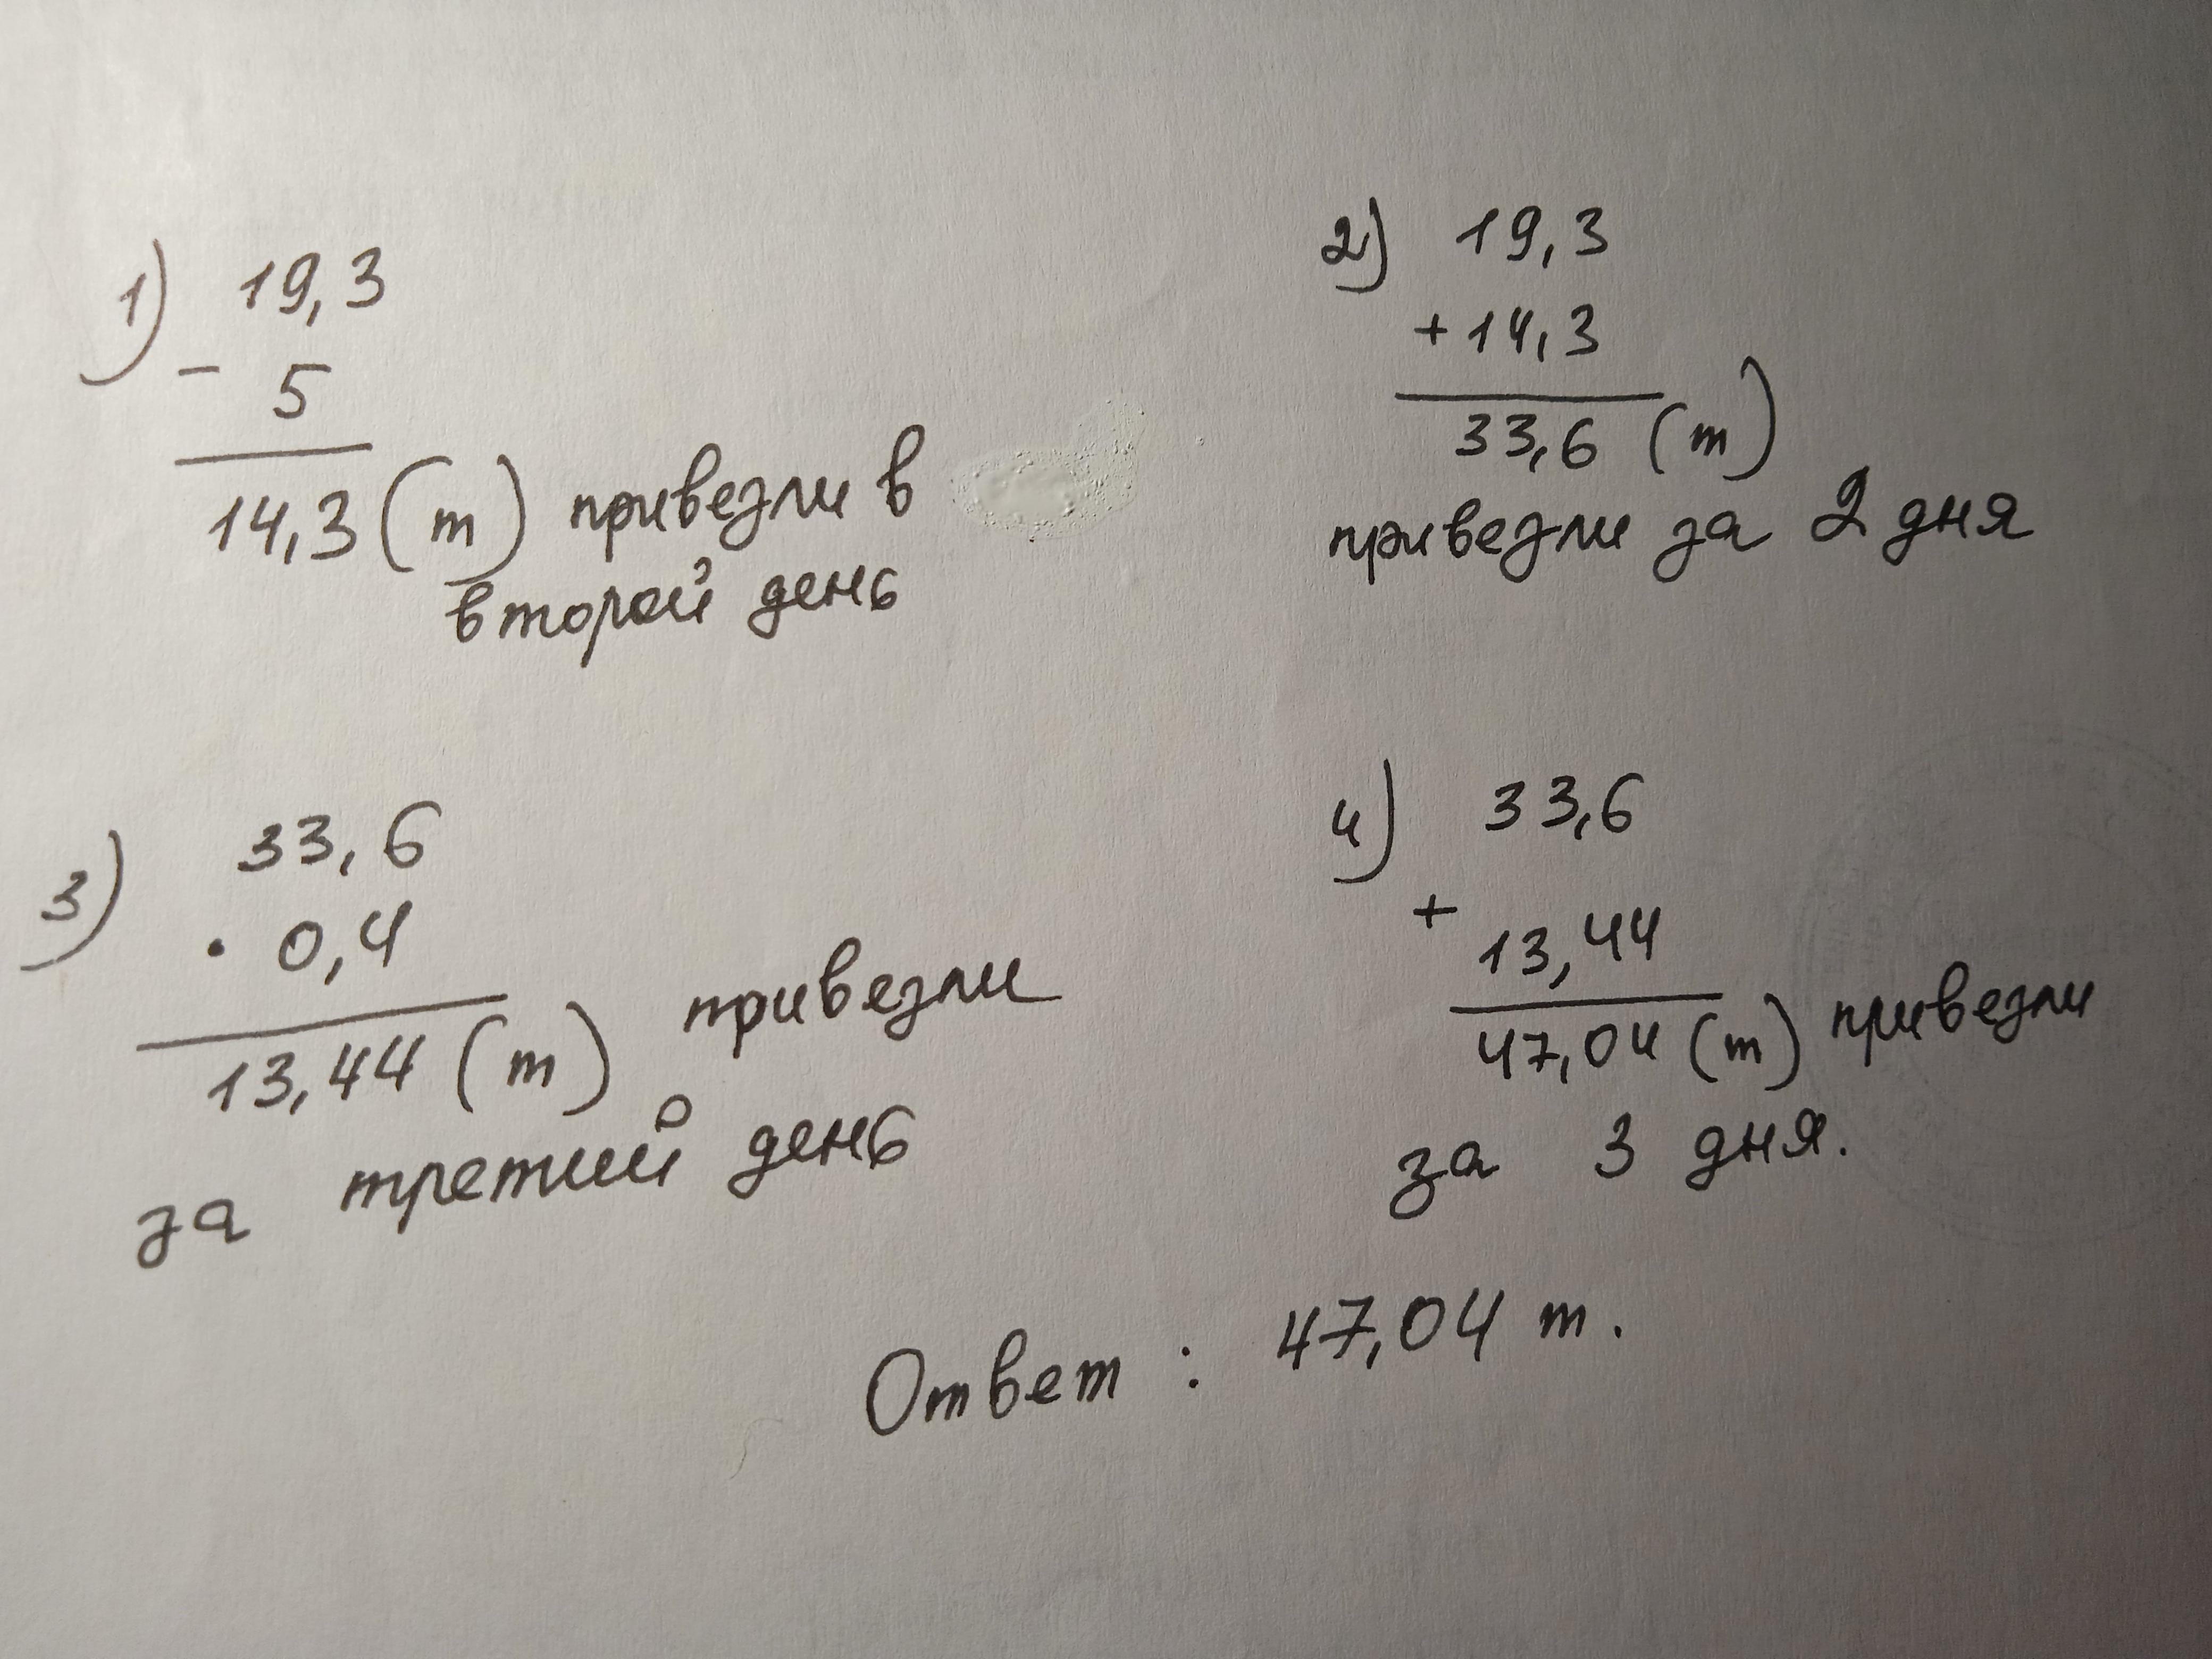 1) 19,3
- 5
14,3 (т) привезли в
второй день
2) 19,3
+ 14,3
33,6 (т)
привезли за 2 дня
3) 33,6
· 0,4
13,44 (т) привезли
за третий день
4) 33,6
+ 13,44
47,04 (т) привезли
за 3 дня.
Ответ : 47,04 т.